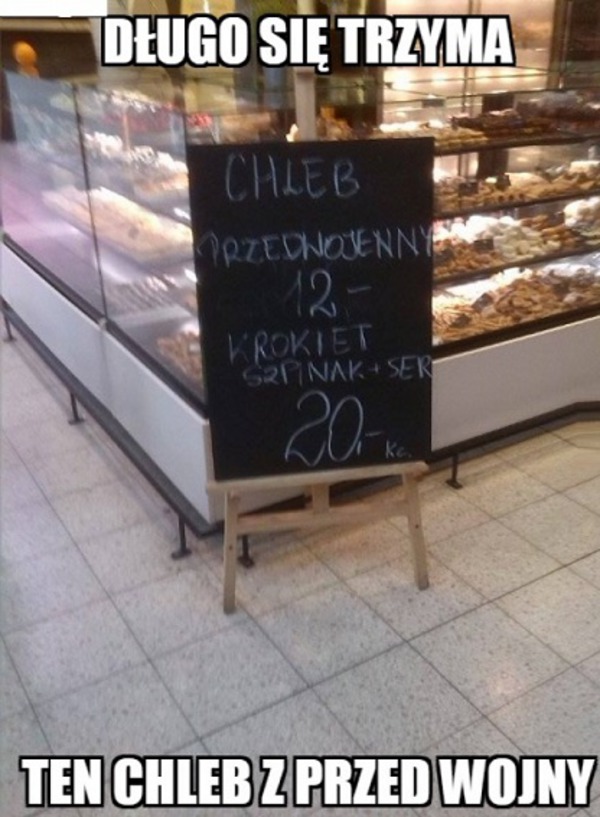 DŁUGO SIĘ TRZYMA
CHLEB
PRZEDWOJENNY
12,-
KROKIET
SZPINAK + SER
20,- Kc.
TEN CHLEB Z PRZED WOJNY